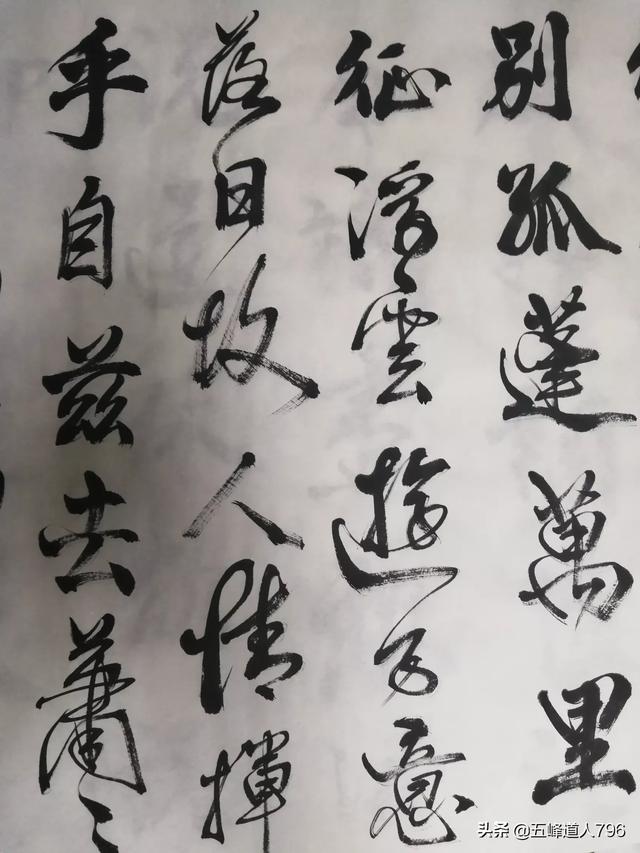 別孤蓬萬里
征浮雲遊子意
落日故人情揮
手自茲去蕭〻
头条 @五峰道人796